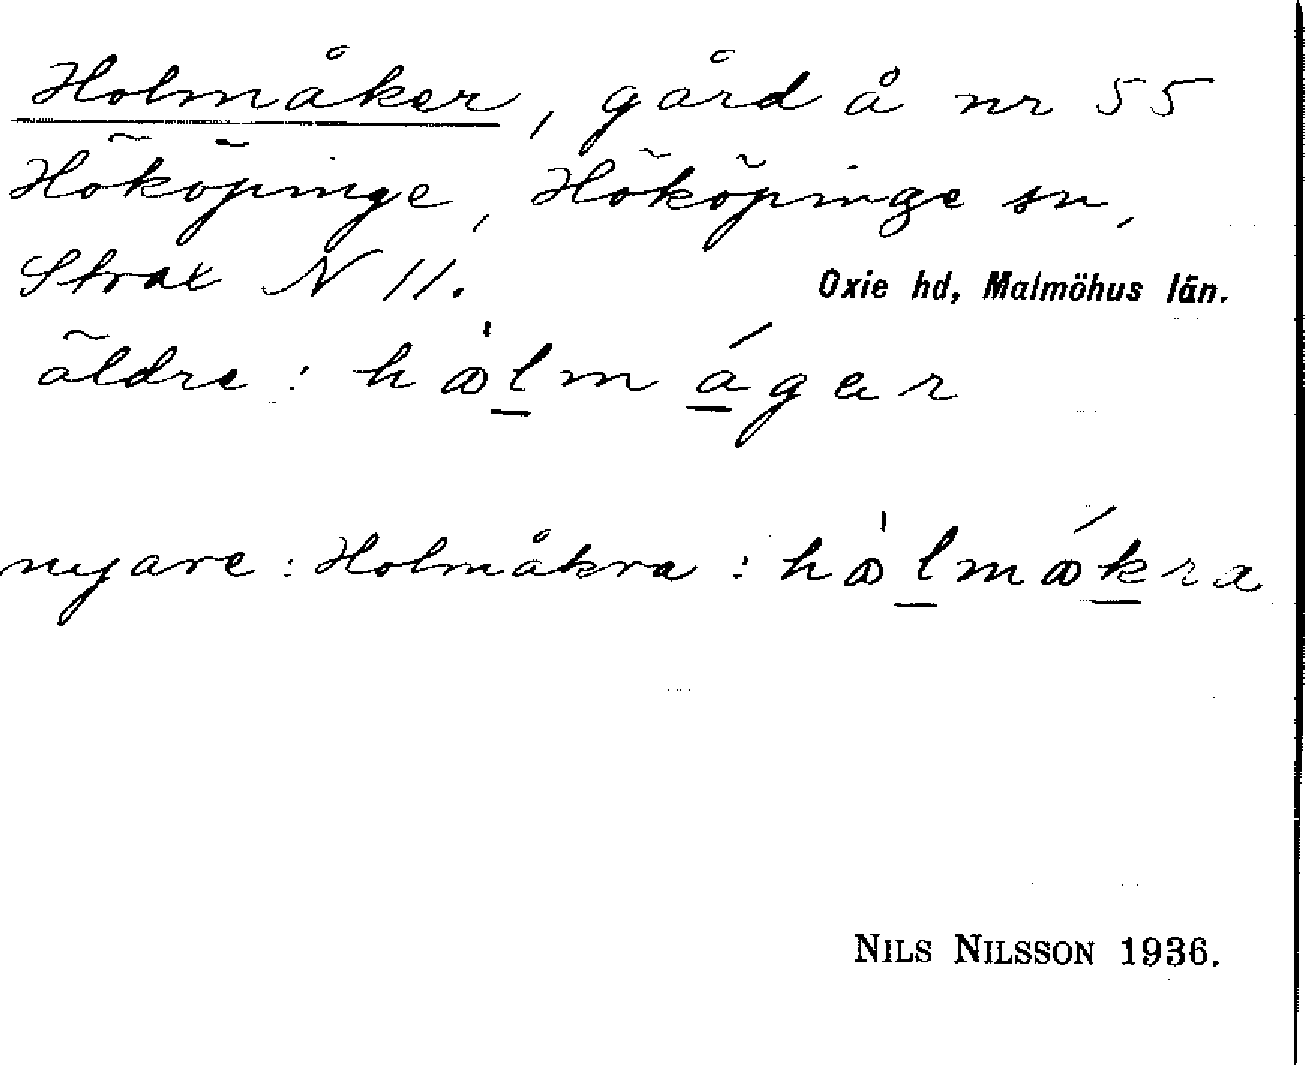 Holmåker, gård å nr 55
Hököpinge, Hököpinge sn,
Strax N 11.
Oxie hd, Malmöhus län.
äldre: hꝏ̀lmágar
nyare: Holmåkra: hꝏ̀lmꝏ́kra
NILS NILSSON 1936.